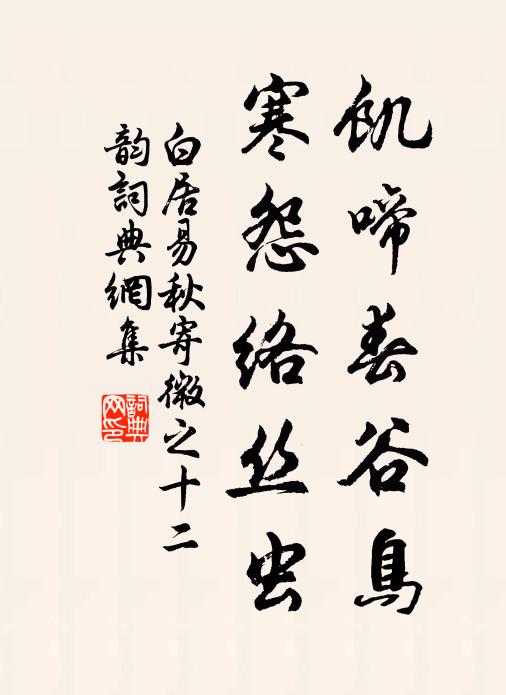 飢啼春谷鳥
寒怨络丝虫
白居易秋寄微之十二
韵詞典網集
詞典
网印